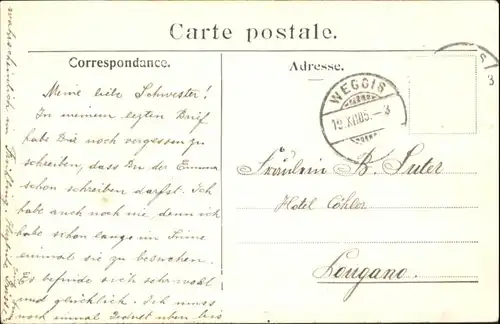 Carte postale.
Correspondance.
Adresse.
Meine liebe Schwester!
In meinem lezten Brif
habe Dir noch vergessen zu
schreiben, dass Du der Emma
schon schreiben darfst. Ich
habe auch noch nie, denn ich
habe schon lange im Sinne
einmal sie zu besuchen.
Es befinde mich sehr wohl
und glücklich. Ich muss
noch einmal
bis
wahrscheinlich im Frühling.
WEGGIS
Fräulein B. Suter
Hotel Cöhler
Lougano.